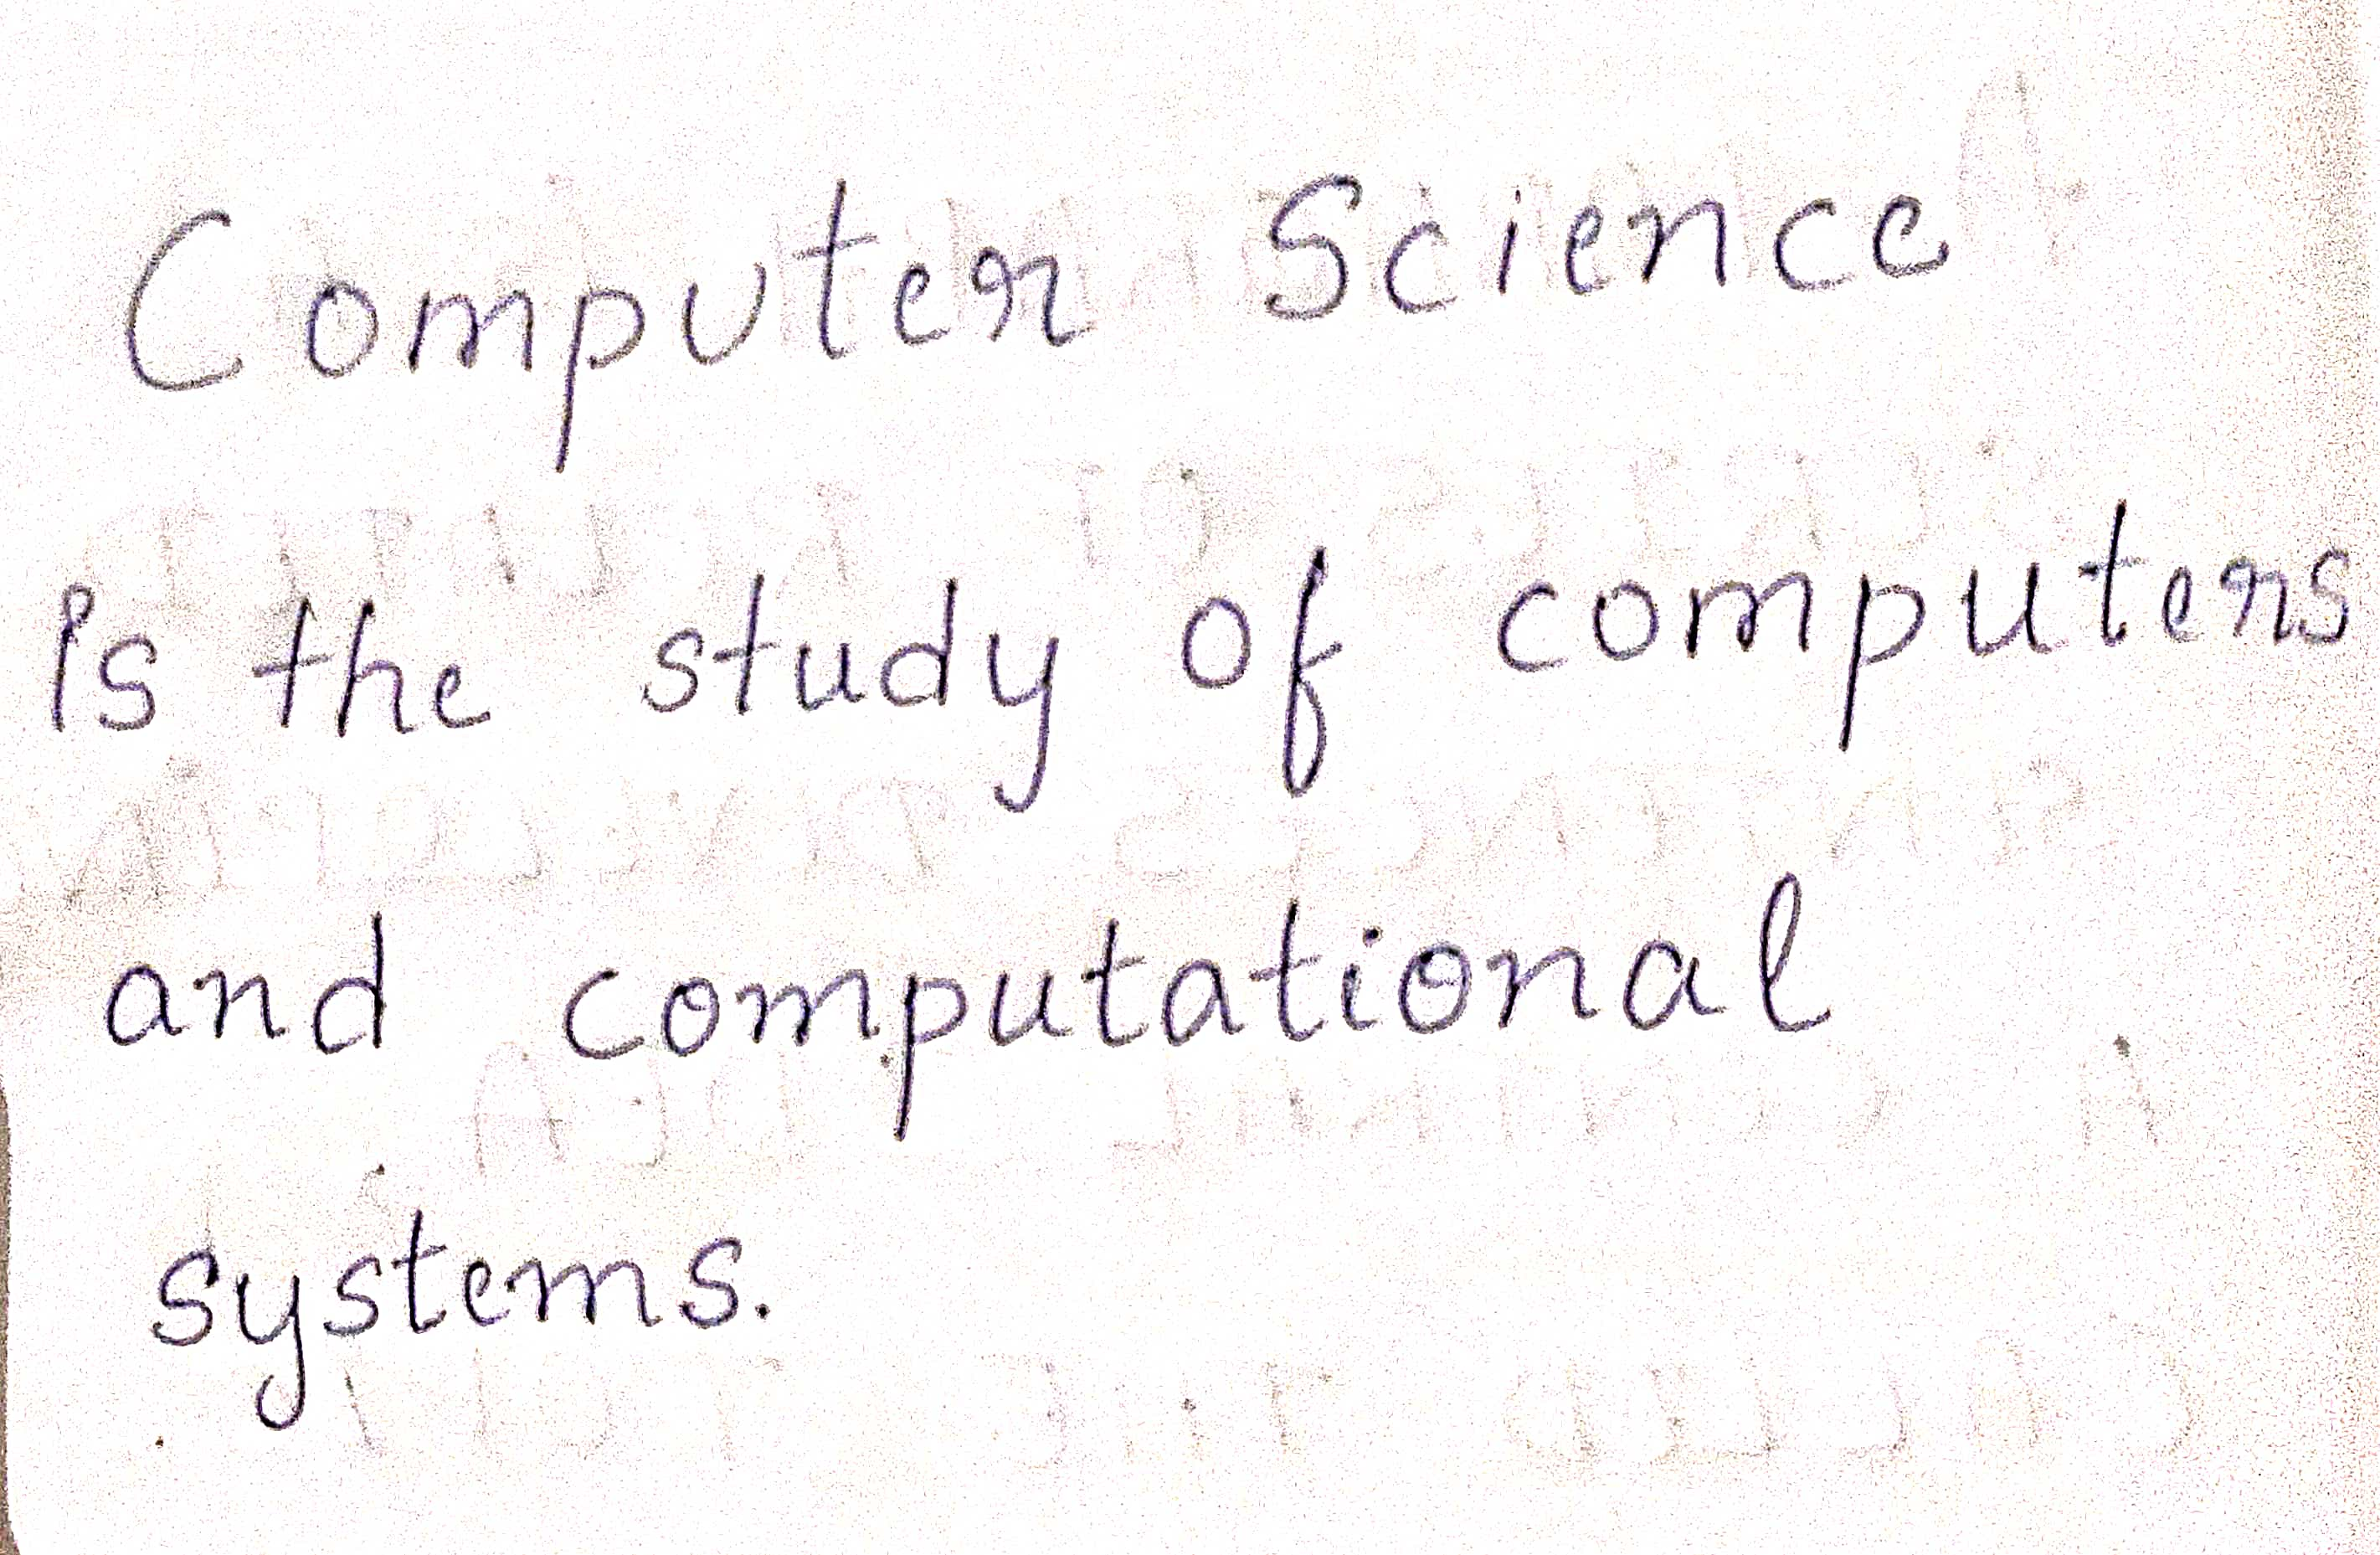 Computer Science
is the study of computers
and computational
systems.